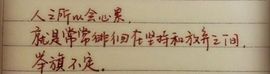 人之所以会心累,
就是常常徘徊在坚持和放弃之间,
举旗不定.